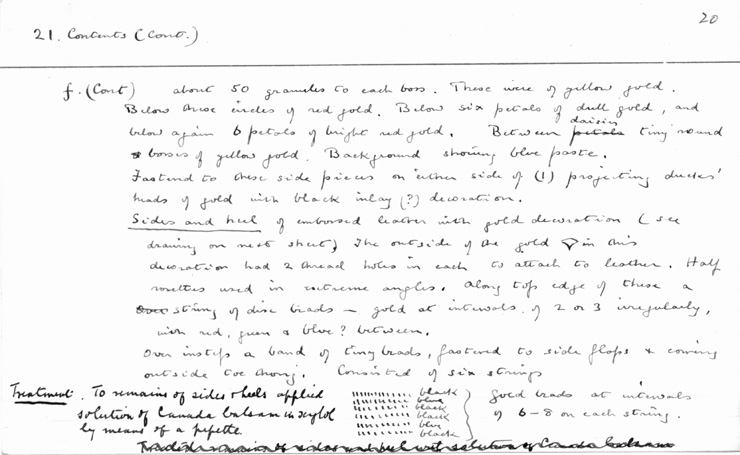 20
21. Contents (Cont.)
f. (Cont) about 50 granules to each boss. These were of yellow gold.
Below these circles of red gold. Below six petals of dull gold, and
below again 6 petals of bright red gold. Between petals daisies tiny round
bosses of yellow gold. Background showing blue paste.
Fastend to these side pieces on either side of (1) projecting ducks'
heads of gold with black inlay (?) decoration.
Sides and heel of embossed leather with gold decoration (see
drawing on next sheet) The outside of the gold ▽ in this
decoration had 2 thread holes in each to attach to leather. Half
rosettes used in extreme angles. Along top edge of these a
string of disc beads – gold at intervals of 2 or 3 irregularly,
with red, green & blue? between.
Over instep a band of tiny beads, fastened to side flaps & coming
outside toe thong. Consisted of six strings
Treatment. To remains of sides & heels applied
solution of Canada balsam in xylol
by means of a pipette.
black
blue
black
black
blue
black
Gold beads at intervals
of 6–8 on each string.